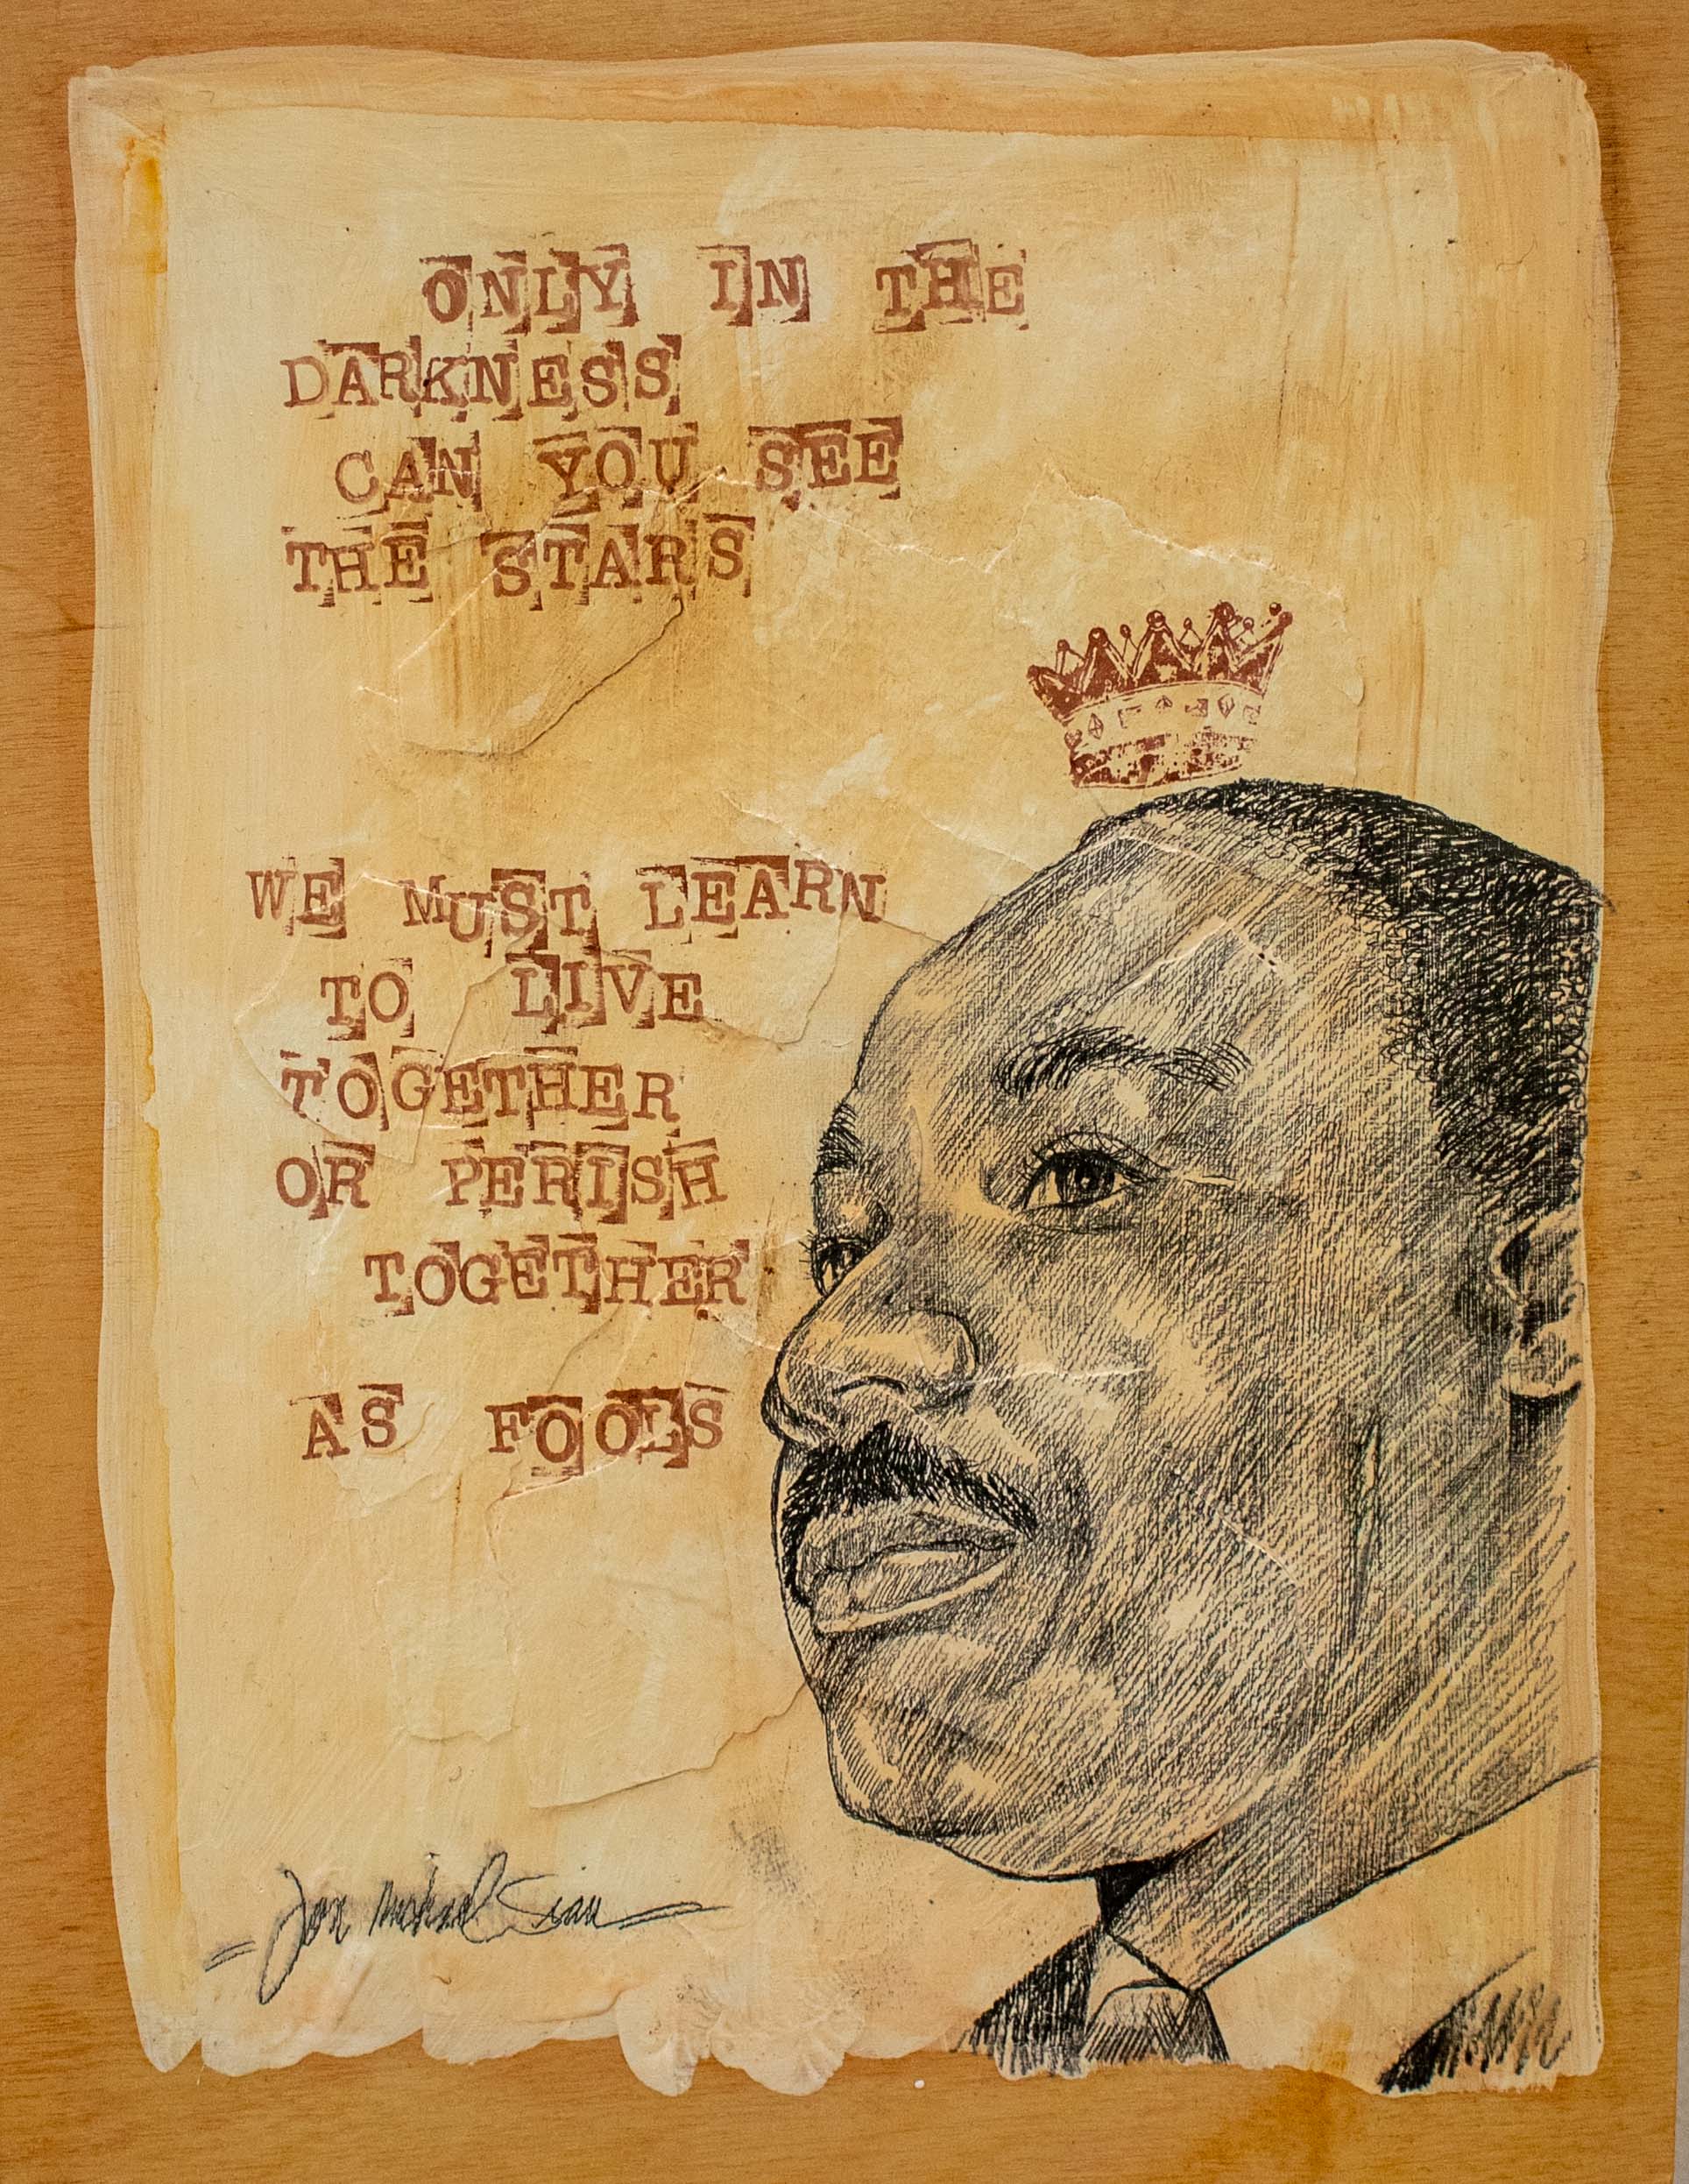 ONLY IN THE
DARKNESS
CAN YOU SEE
THE STARS
WE MUST LEARN
TO LIVE
TOGETHER
OR PERISH
TOGETHER
AS FOOLS
Jon Michael